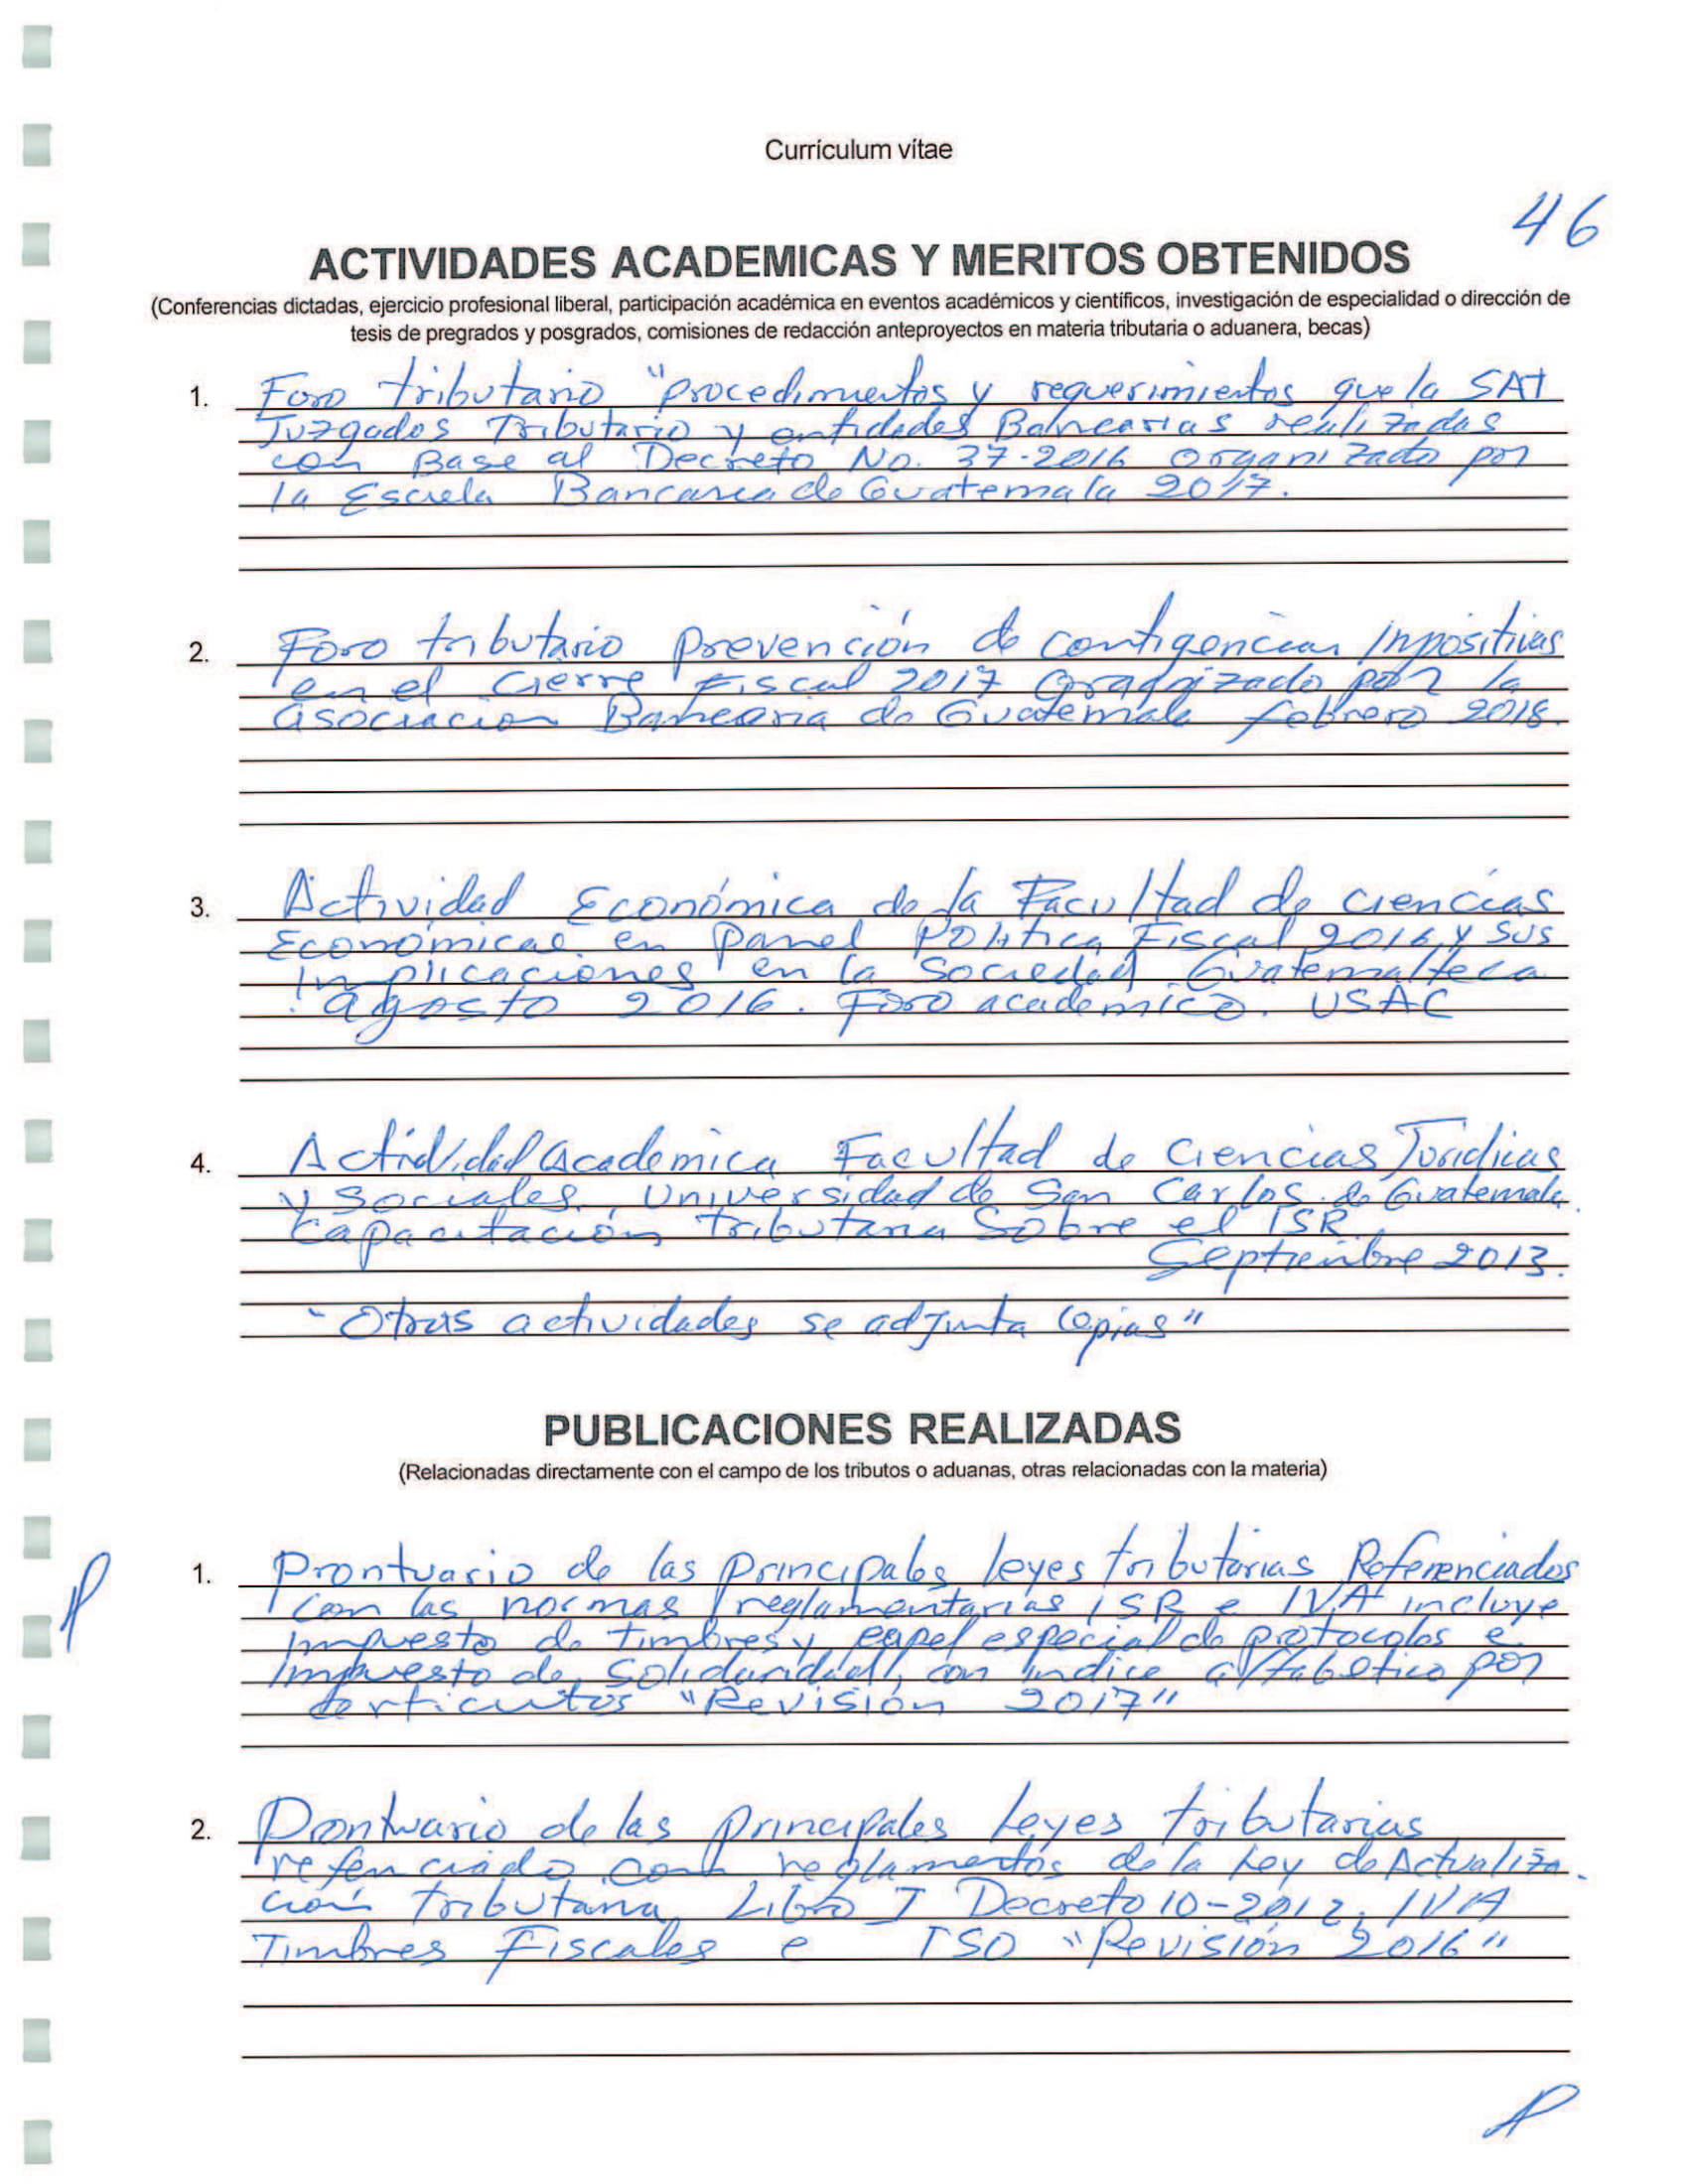 Currículum vítae
46
ACTIVIDADES ACADEMICAS Y MERITOS OBTENIDOS
(Conferencias dictadas, ejercicio profesional liberal, participación académica en eventos académicos y científicos, investigación de especialidad o dirección de
tesis de pregrados y posgrados, comisiones de redacción anteproyectos en materia tributaria o aduanera, becas)
1. Foro tributario "procedimientos y requerimientos que la SAT
Juzgados Tributario y entidades Bancarias realizadas
con Base al Decreto No. 37-2016 organizado por
la Escuela Bancaria de Guatemala 2017.
2. Foro tributario prevención de contigencias Inpositivas
en el cierre Fiscal 2017 por la
asociacion Bancaria de Guatemala febrero 2018.
3. Actividad Económica de la Facultad de ciencias
Económicas en Panel Política Fiscal 2016 y sus
Implicaciones en la Sociedad Guatemalteca
agosto 2016. Foro academico. USAC
4. Academica Facultad de Ciencias Jurídicas
y Sociales. Universidad de San Carlos de Guatemala.
Capacitación tributaria Sobre el ISR.
Septiembre 2013.
"Otras actividades se adjunta copias"
PUBLICACIONES REALIZADAS
(Relacionadas directamente con el campo de los tributos o aduanas, otras relacionadas con la materia)
1. Prontuario de las principales leyes tributarias Referenciados
con las normas reglamentarias ISR e IVA incluye
Impuesto de timbres y papel especial de protocolos e
Impuesto de Solidaridad, con indice alfabetico por
articulos "Revisión 2017"
2. Prontuario de las principales leyes tributarias
refenciado con reglamentos de la Ley de Actualiza-
ción tributaria Libro I Decreto 10-2012, IVA
Timbres Fiscales e ISO "Revisión 2016"